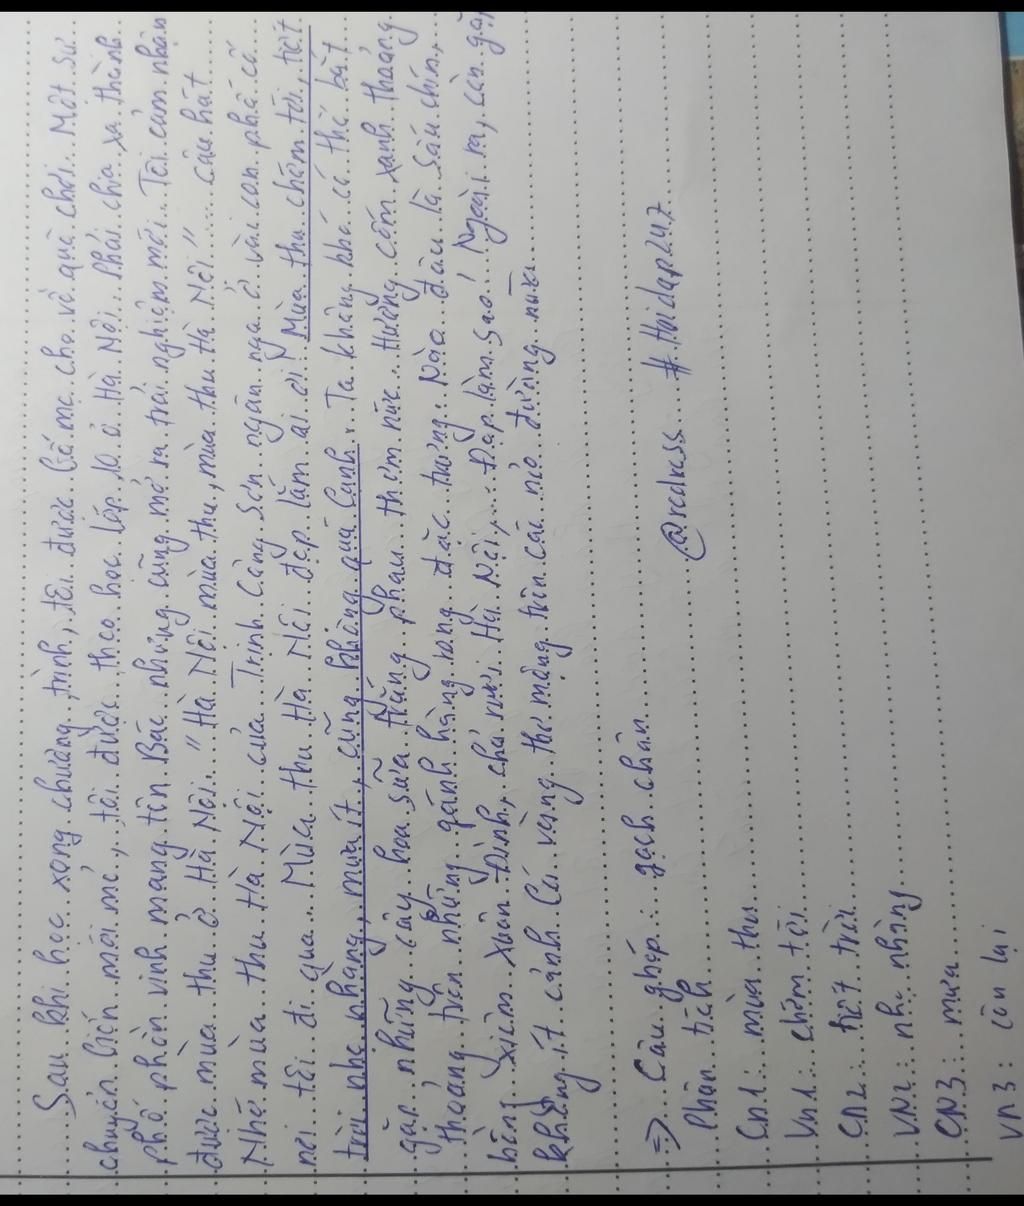 Sau khi học xong chương trình, tôi được bố mẹ cho về quê chơi. Một sự
chuyển biến mới mẻ, tôi được theo học lớp 10 ở Hà Nội. Phải chia xa thành
phố phồn vinh mang tên Bác nhưng cũng mở ra trải nghiệm mới. Tôi cảm nhận
được mùa thu ở Hà Nội. "Hà Nội mùa thu, mùa thu Hà Nội" câu hát
Nhớ mùa thu Hà Nội của Trịnh Công Sơn ngân nga ở vài con phố cổ
nơi tôi đi qua. Mùa thu Hà Nội đẹp lắm ai ơi! Mùa thu chớm tới, tiết
trời nhẹ nhàng, mưa ít, cũng không quá lạnh. Ta không khó có thể bắt
gặp những cây hoa sữa trắng phau thơm nức. Hương cốm xanh thoảng
thoảng trên những gánh hàng rong đặc trưng. Nào đâu là sấu chín,
hồng xiêm Xuân Đỉnh, chả rươi Hà Nội,... Đẹp làm sao! Ngoài ra, còn gặp
không ít cảnh lá vàng thơ mộng trên các nẻo đường nữa.
=> Câu ghép: gạch chân
Phân tích @redress #Hoidap247
CN1: mùa thu
VN1: chớm tới
CN2: tiết trời
VN2: nhẹ nhàng
CN3: mưa
VN3: còn lại